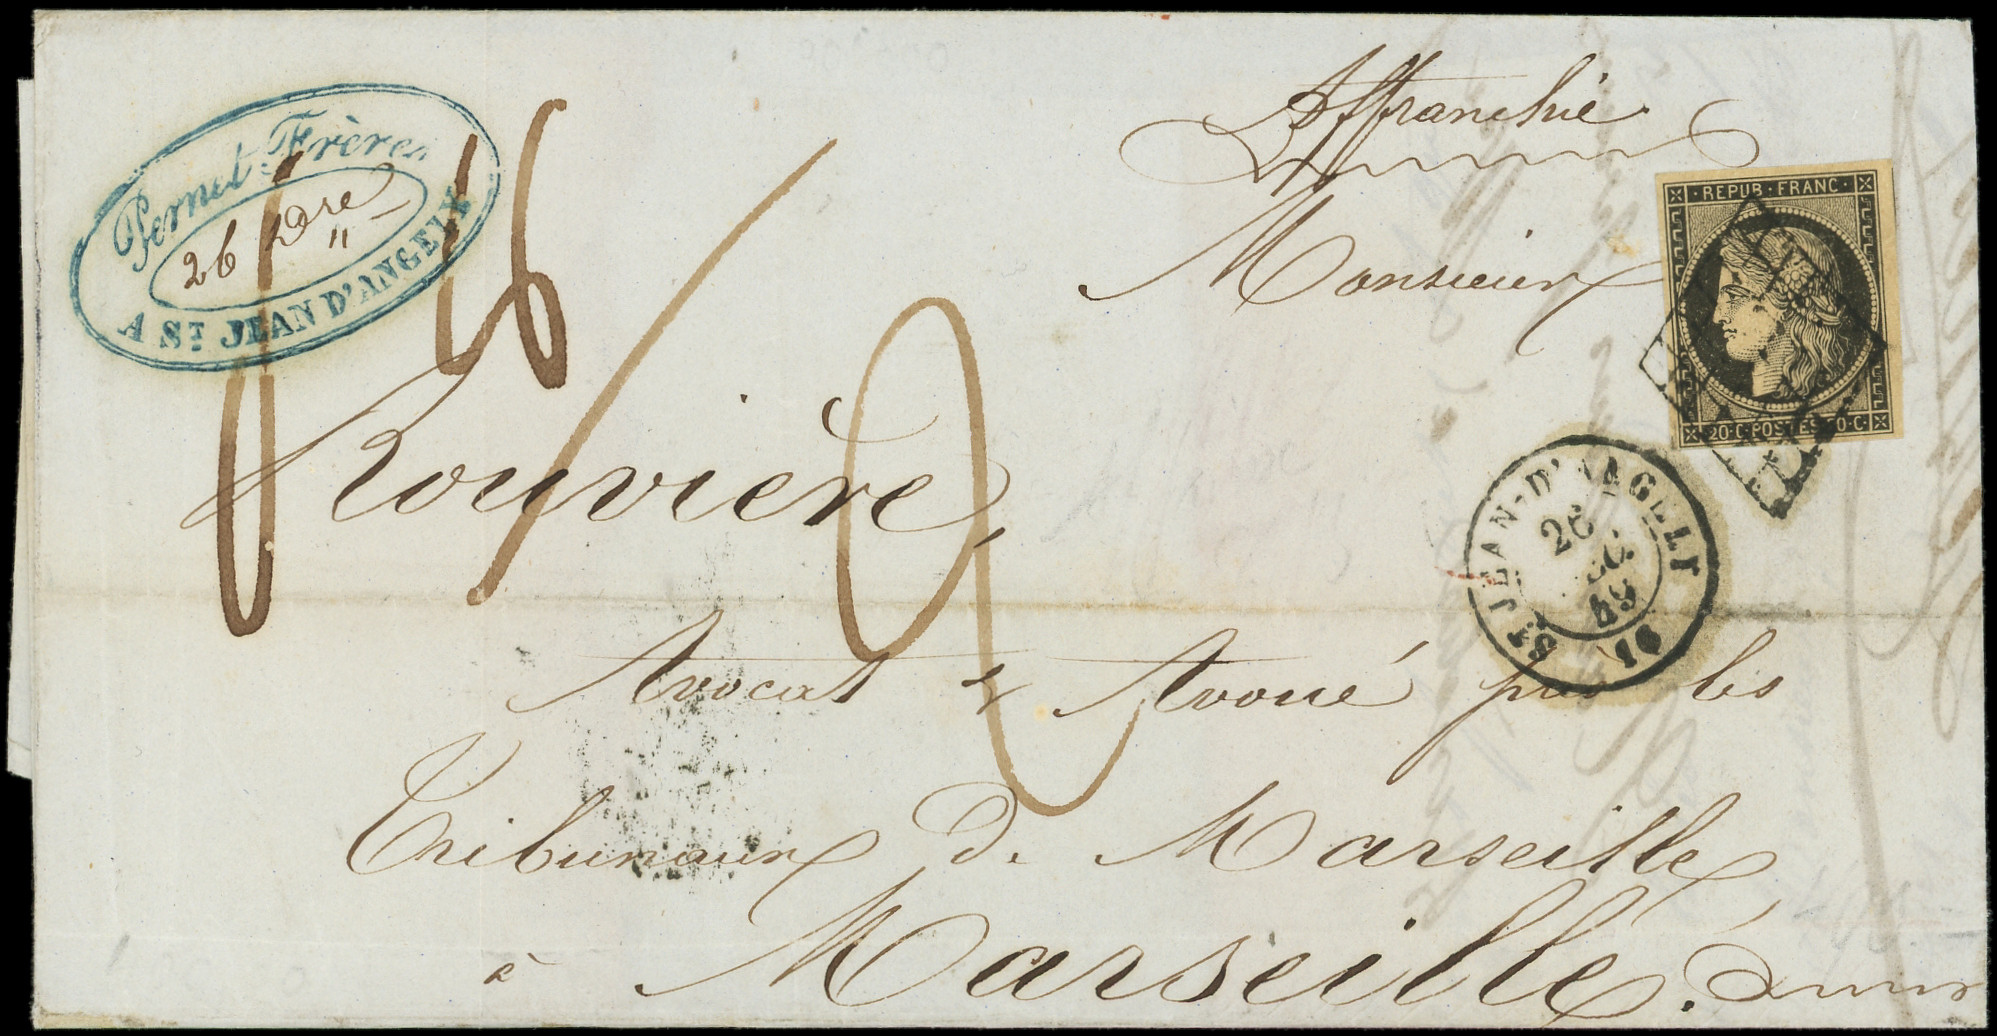 Pernet Frères
26 Xbre
A ST JEAN D'ANGELY
16
2
Affranchie
Monsieur
REPUB·FRANC·
20·C·POSTES 20·C·
Rouvière,
ST JEAN-D'ANGELY
26
DC
49
16
Avocat & Avoué près les
Tribunaux de Marseille,
à Marseille.